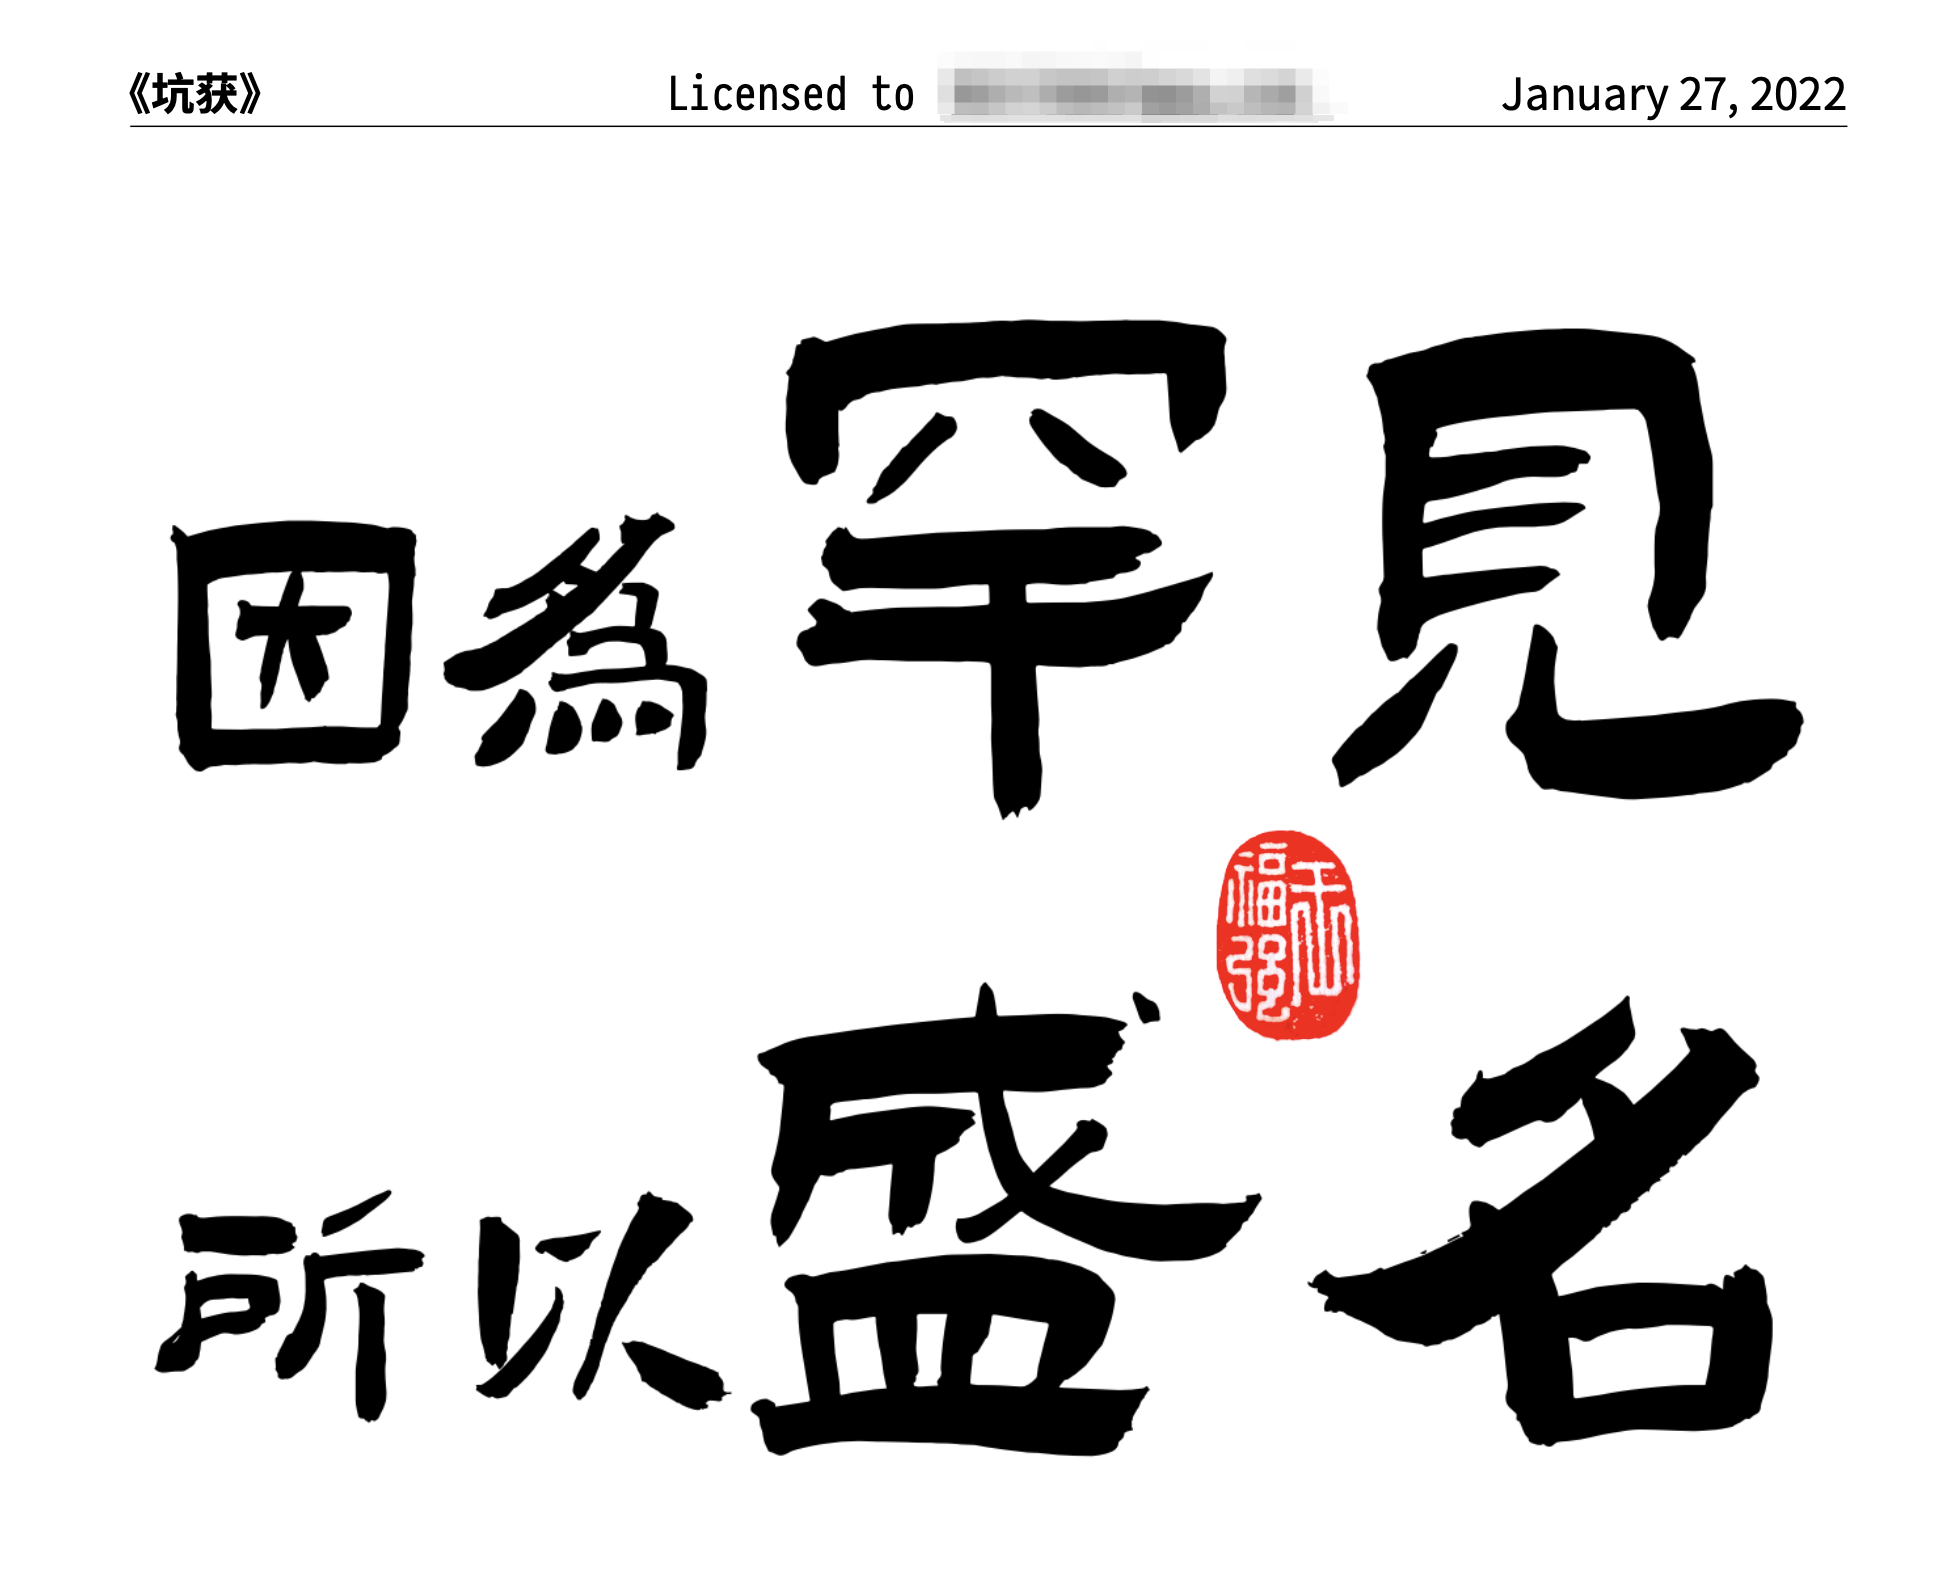 《坑获》 Licensed to January 27, 2022
因為罕見
福强
所以盛名